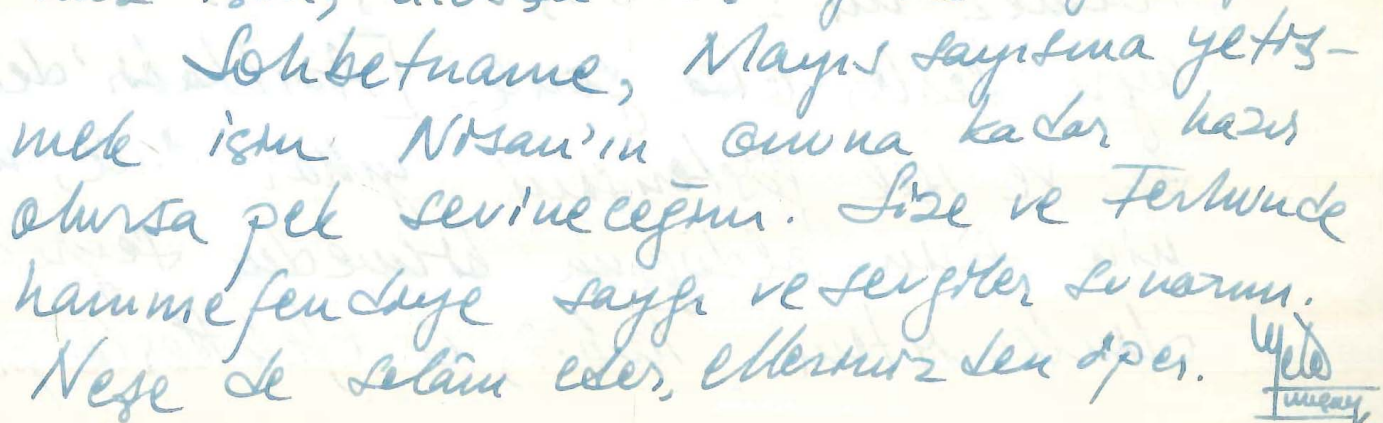 Sohbetname, Mayıs sayısına yetiş-
mek için Nisan'ın onuna kadar hazır
olursa pek sevineceğim. Size ve Ferhunde
hanımefendiye saygı ve sevgiler sunarım.
Neşe de selâm eder, ellerinizden öper. Mete
Tunçay